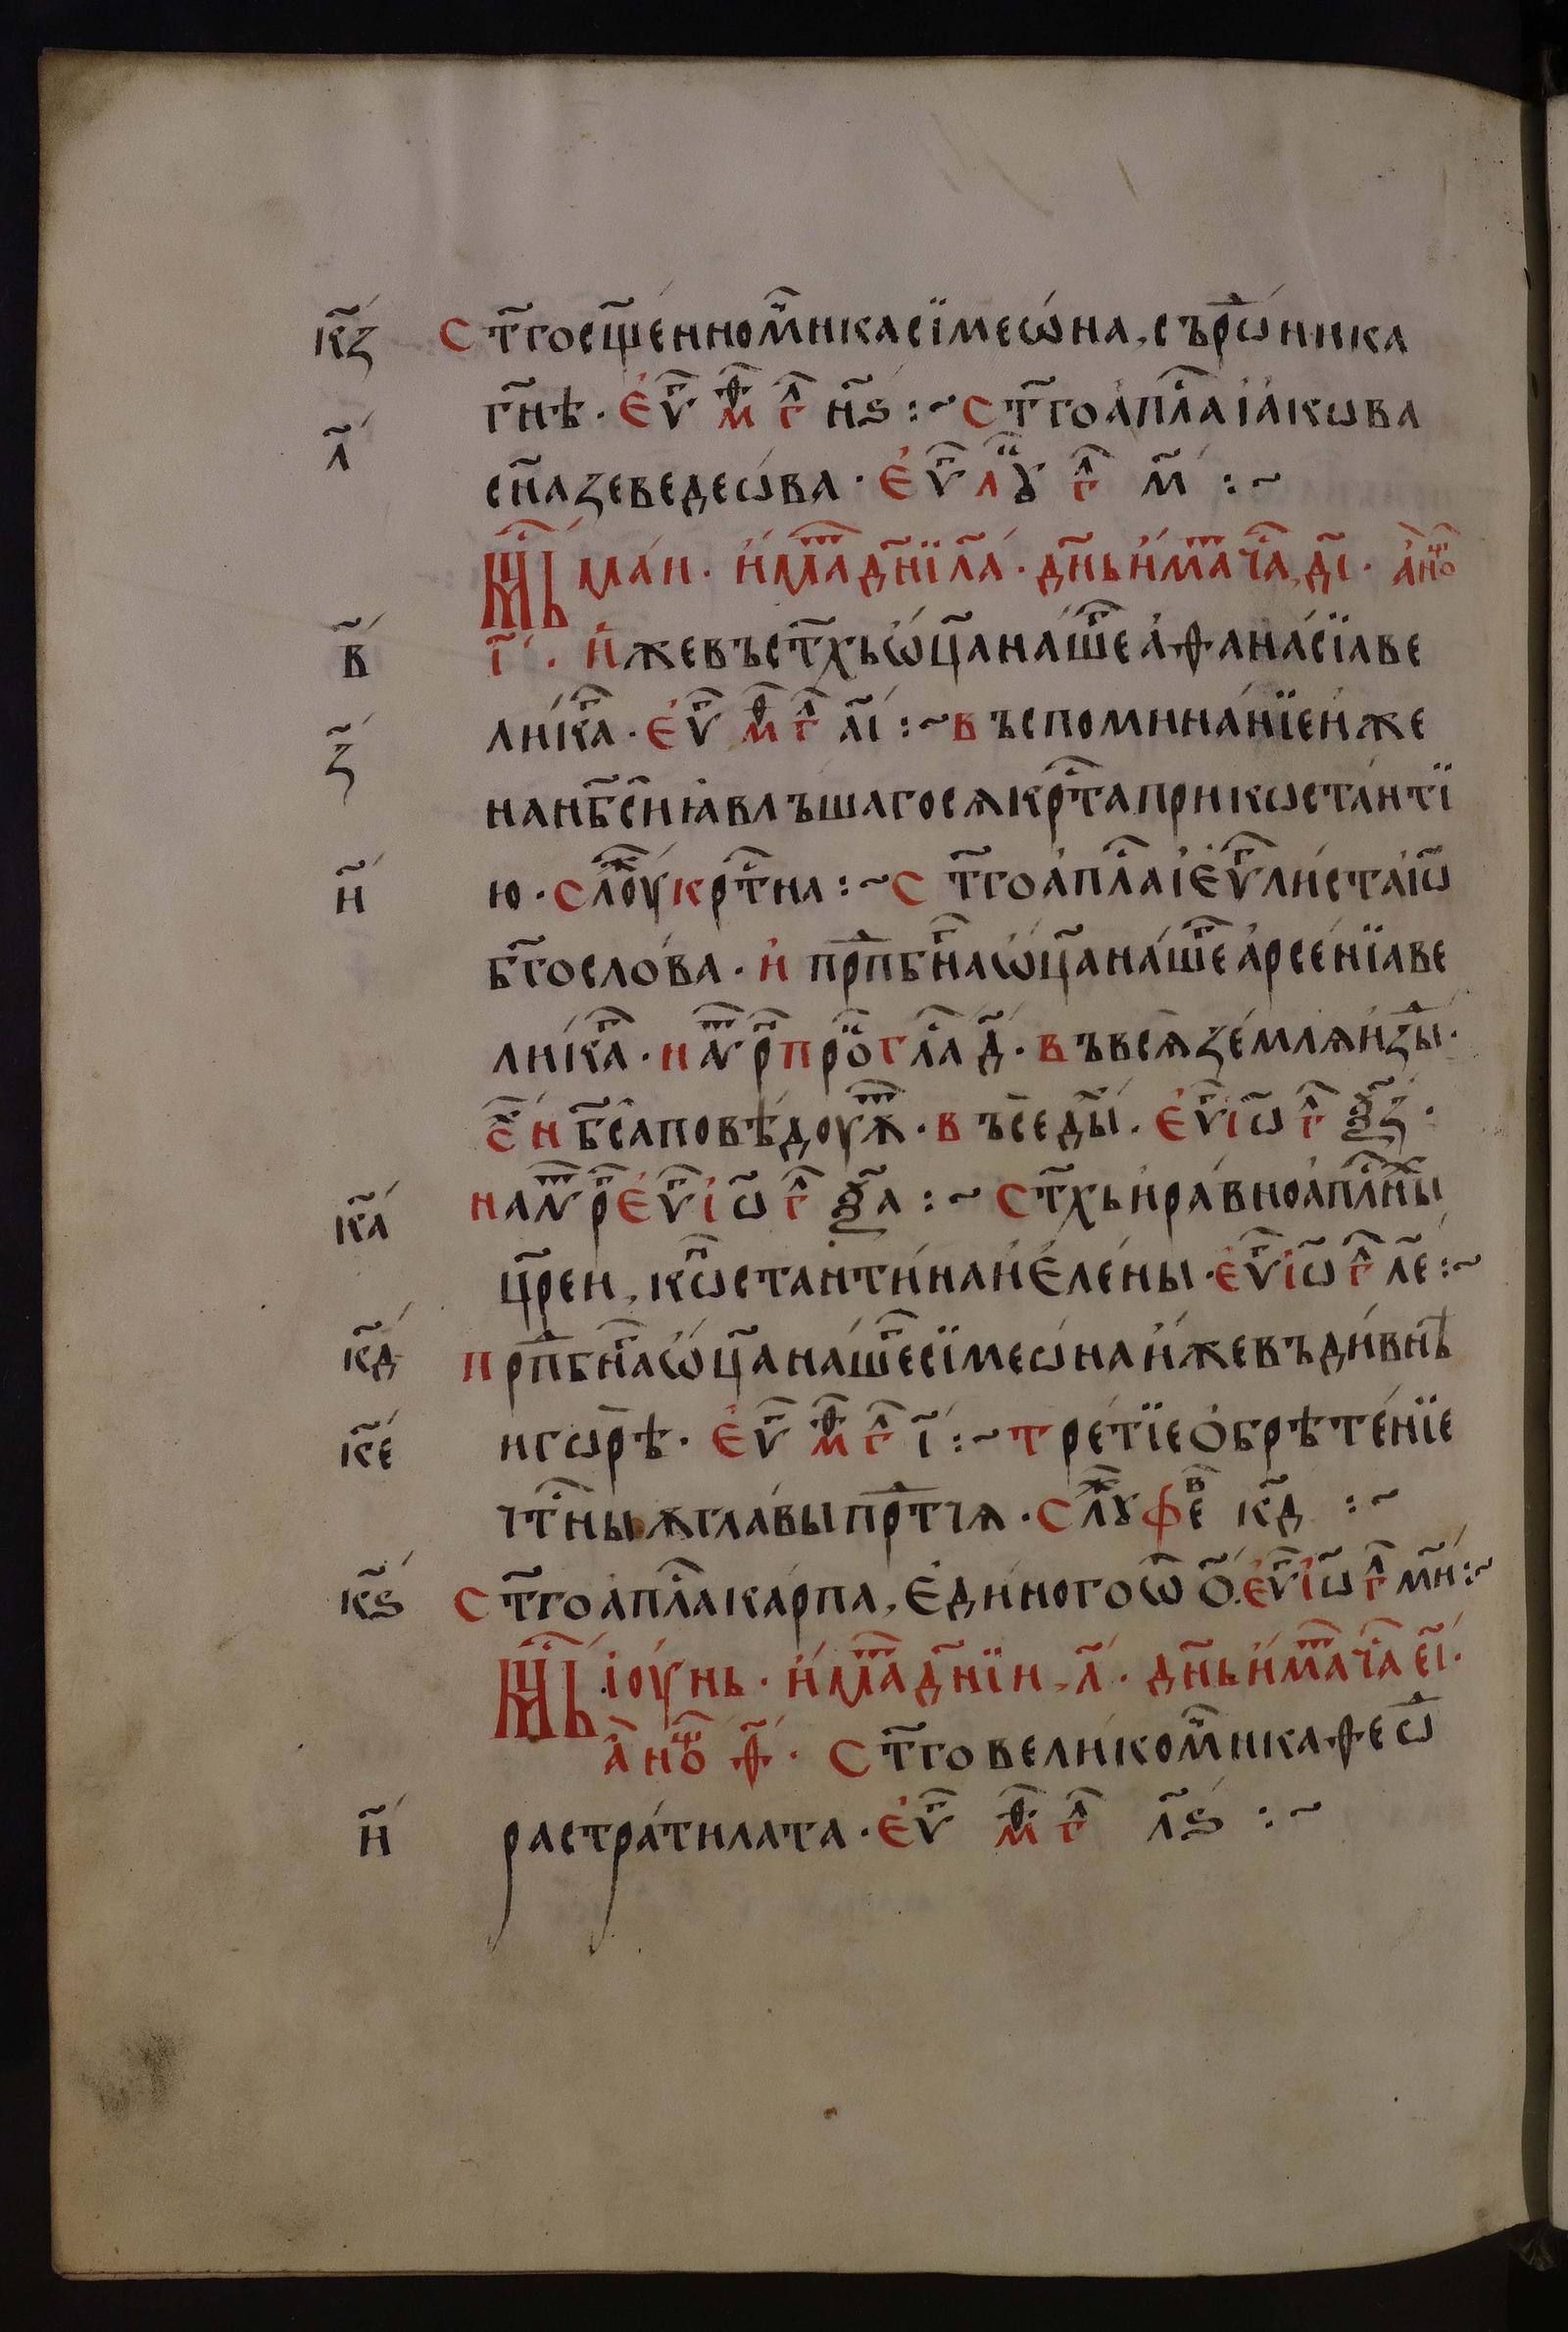 к҃з С т҃госщ҃е́нном҃нкасїмеѡ́на, съро́дника
г҃нѣ · Є҆ѵⷢ҇ мⷴ гⷧ н҃ѕ :~ С т҃гоа҆пⷭ҇лаі҆а́кѡва
л҃ сн҃азеведеѡ́ва · Є҆ѵⷢ҇ лꙋⷦ гⷧ м҃ :~
Мⷭ҇ць ма́и · и҆́матьдн҃їл҃а · дн҃ьи҆́матьчаⷭ҇,д҃і · а҆́ноⷳ
в҃ г҃ · И҆жевъст҃хьѡ҆ц҃ана́шегоа҆ѳана́сїаве
з҃ ли́каго · Є҆ѵⷢ҇ мⷴ гⷧ а҃і :~ въспомина́нїеи҆́же
нанб҃сиꙗ҆влъшагосѧкрⷭ҇таприкѡста́нтї
и҃ ю · Слоуⷤ крⷭ҇тна :~ С т҃гоа҆пⷭ҇лаі҆є҆ѵⷢ҇ли́стаі҆ѡ҃
бг҃осло́ва · и҆ прⷣпбнагоѡ҆ц҃ана́шегоа҆рсе́нїаве
ли́каго · на ѵтⷬ҇ пр҃оⷦ глⷭ҇а д҃ · въвсѧ҆́зе́млѧи҆зы́ ·
с҃ нб҃сапо́вѣдоуⷮѧ · въсе́дⷨы · Є҆ѵⷢ҇і҆ѡ҃ гⷧ ѯ҃з ·
к҃а на ѵтⷬ҇ Є҆ѵⷢ҇ і҆ѡ҃ гⷧ ѯ҃а :~ Ст҃хьи҆ра́вноа҆пⷭ҇лны
цр҃еи, кѡⷩ҇станти́наи҆Є҆ле́ны · Є҆ѵⷢ҇і҆ѡ҃ гⷧ л҃е :~
к҃д прⷣпбнагоѡ҆ц҃ана́шегосїмеѡ́наи҆́жевъди́внѣ
к҃е и҆горѣ · Є҆ѵⷢ҇ мⷴ гⷧ і҃ :~ тре́тїеѻ҆брѣте́нїе
чтⷭ҇ныѧглавы́прⷣтчѧ · Слꙋⷤ феⷡ к҃д :~
к҃ѕ С т҃гоа҆пⷭ҇лака́рпа, Є҆ди́ногоѿ ѻ҃ · є҆ѵⷢ҇і҆ѡ҃ гⷧ м҃и :~
Мⷭ҇ць і҆оу́нь · и҆́матьдн҃їи, л҃ · дн҃ьи҆́матьчаⷭ҇ е҃і ·
а҆́ноⷳ ѳ҃ · С т҃говели́ком҃никаѳеѡⷣ
и҃ растра́тилата · Є҆ѵⷢ҇ мⷴ гⷧ л҃ѕ :~